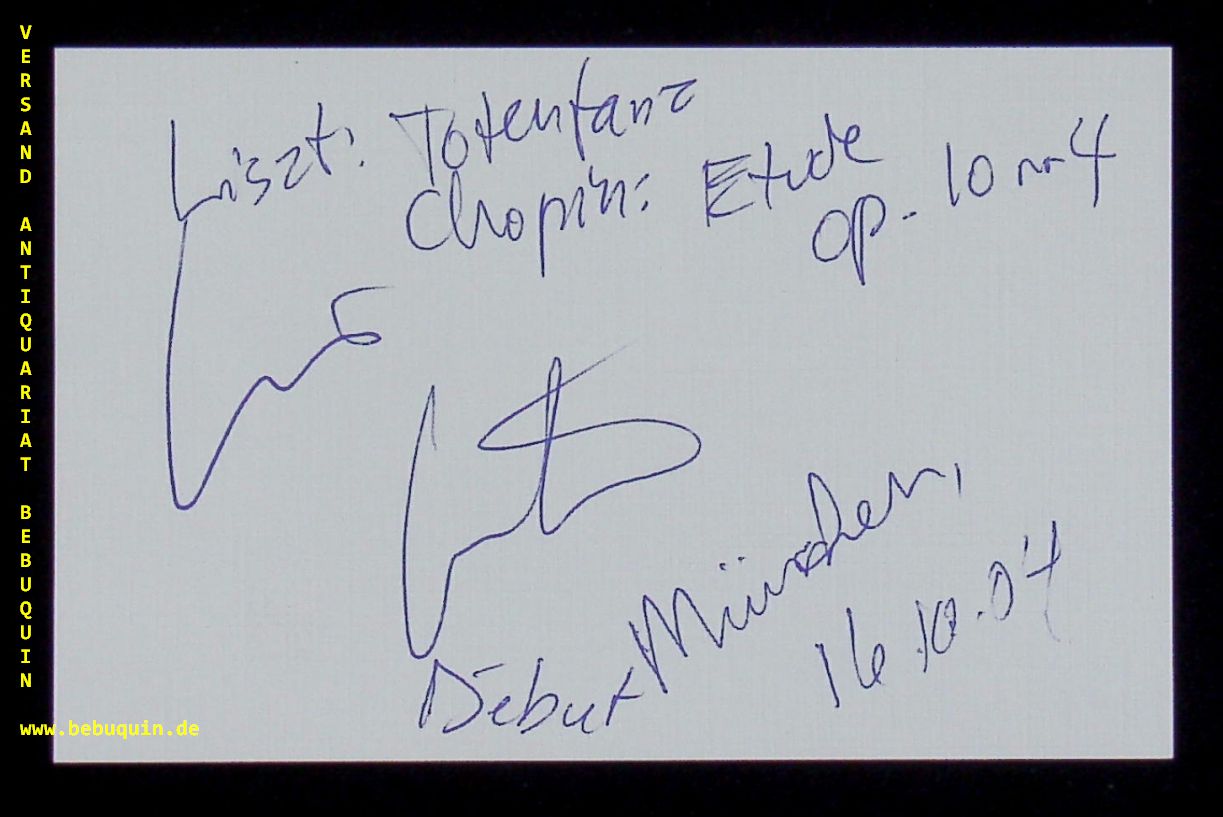 VERSAND ANTIQUARIAT BEBUQUIN
www.bebuquin.de
Liszt: Totentanz
Chopin: Etude
op. 10 nr 4
Debut München,
16.10.04